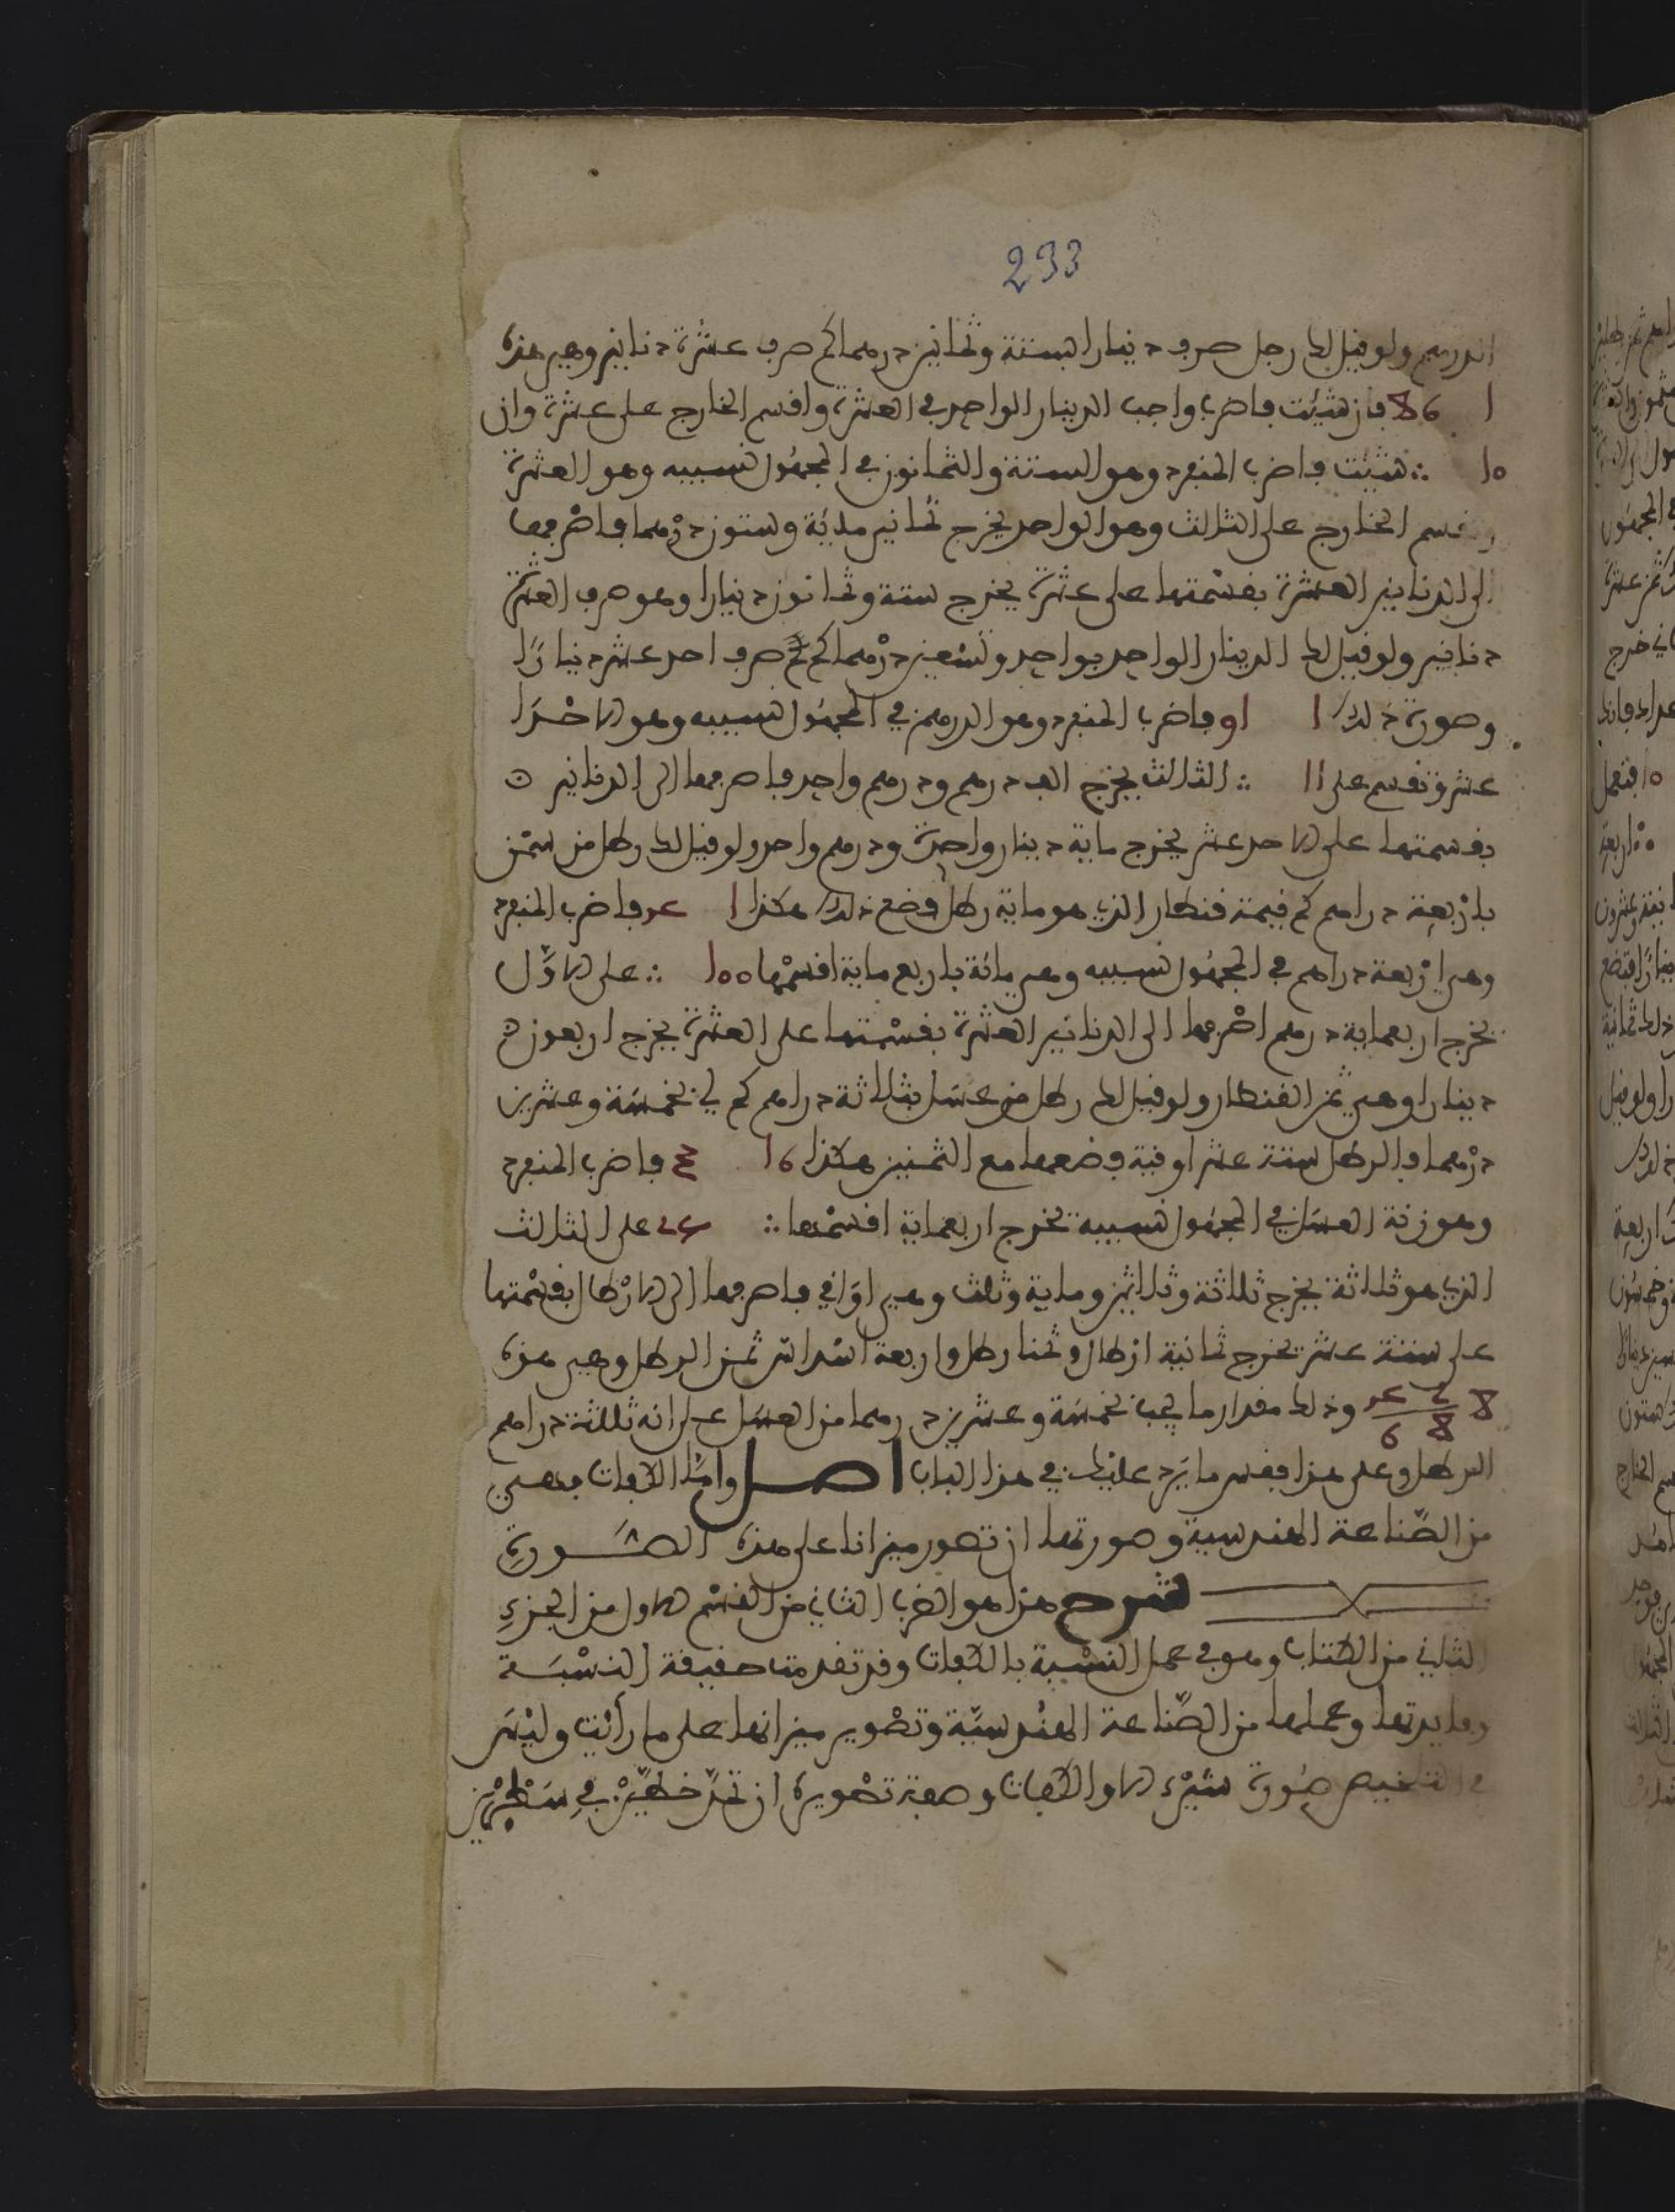 233
الدرهم ولو قيل لك رجل صرف دينارا بستة وثمانين درهما كم صرف عشرة دنانير وهي هذه
1 86 فان شئت فاضرب واجب الدينار الواحد في العشرة واقسم الخارج على عشرة وان
10 ∴ شئت فاضرب المنفرد وهو الستة والثمانون في المجهول نسيبه وهو العشرة
وتقسم الخارج على الثالث وهو الواحد يخرج ثماني مائة وستون درهما فاصرفها
الى الدنانير العشرة بقسمتها على عشرة يخرج ستة وثمانون دينارا وهو صرف العشرة
دنانير ولو قيل لك الدينار الواحد بواحد وتسعين درهما كم صرف احد عشر دينارا
وصورة ذلك 1 91 فاضرب المنفرد وهو الدرهم في المجهول نسيبه وهو الاحد
عشر وتقسم على 11 ∴ الثالث يخرج الف درهم ودرهم واحد فاصرفها الى الدنانير
بقسمتها على الاحد عشر يخرج ماية دينار واحدة ودرهم واحد ولو قيل لك رطل من سمن
باربعة دراهم كم قيمة قنطار الذي هو ماية رطل فضع ذلك هكذا 1 4 فاضرب المنفرد
وهي اربعة دراهم في المجهول نسيبه وهي مائة باربع ماية اقسمها 100 ∴ على الاول
يخرج اربعماية درهم اصرفها الى الدنانير العشرة بقسمتها على العشرة يخرج اربعون
دينارا وهي ثمن القنطار ولو قيل لك رطل من عسل بثلاثة دراهم كم لي بخمسة وعشرين
درهما والرطل ستة عشر اوقية فضعها مع الثمنين هكذا 16 3 فاضرب المنفرد
وهو زنة العسل في المجهول نسيبه يخرج اربعماية اقسمها ∴ 25 على الثالث
الذي هو ثلاثة يخرج ثلاثة وثلاثين وماية وثلث وهي اواقي فاصرفها الى الارطال بقسمتها
على ستة عشر يخرج ثمانية ارطال وثمنا رطل واربعة اسداس ثمن الرطل وهي هذه
8 2 4 / 8 6 وذلك مقدار ما يجب بخمسة وعشرين درهما من العسل على انه ثلاثة دراهم
الرطل وعلى هذا فقس ما يرد عليك في هذا الباب اصل واما الكفات فهي
من الصناعة الهندسية وصورتها ان تصور ميزانا على هذه الصورة
شرح هذا هو الضرب الثاني من القسم الاول من الجزء
الثاني من الكتاب وهو في عمل النسبة بالكفات وقد تقدمت حقيقة النسبة
وفايدتها وعملها من الصناعة الهندسية وتصوير ميزانها على ما رأيت وليس
في التلخيص صورة شيء الا والكفات وصفة تصويره ان تمد خطين في سطرين